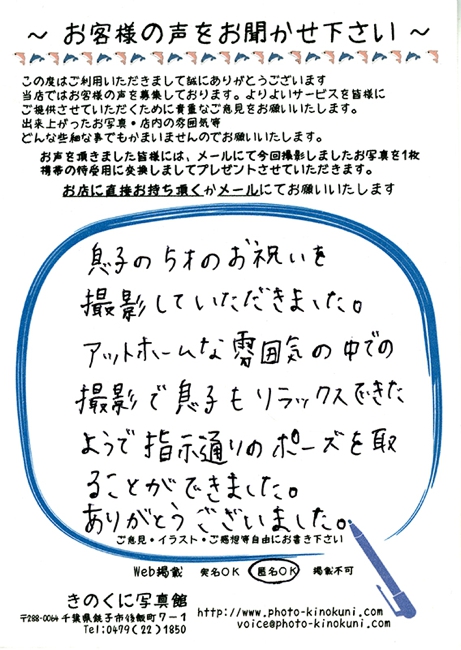 ～ お客様の声をお聞かせ下さい ～
この度はご利用いただきまして誠にありがとうございます
当店ではお客様の声を募集しております。よりよいサービスを皆様に
ご提供させていただくために貴重なご意見をお願いいたします。
出来上がったお写真・店内の雰囲気等
どんな些細な事でもかまいませんのでお願いいたします。
お声を頂きました皆様には、メールにて今回撮影しましたお写真を1枚
携帯の待受用に変換しましてプレゼントさせていただきます。
お店に直接お持ち頂くかメールにてお願いいたします
息子の5才のお祝いを
撮影していただきました。
アットホームな雰囲気の中での
撮影で息子もリラックスできた
ようで指示通りのポーズを取
ることができました。
ありがとうございました。
ご意見・イラスト・ご感想等自由にお書き下さい
Web掲載 実名OK 匿名OK 掲載不可
きのくに写真館
〒288-0064 千葉県銚子市待飯町7-1
Tel:0479(22)1850
http://www.photo-kinokuni.com/
voice@photo-kinokuni.com/